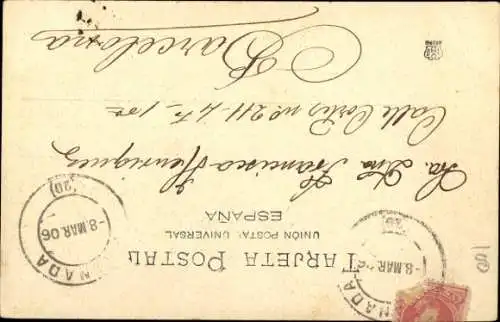 TARJETA POSTAL
UNIÓN POSTAL UNIVERSAL
ESPAÑA
-8.MAR.06
(20)
-8.MAR.06
(20)
NADA
Francisca Henriquez
Calle Cortes nº 211-4º-1ª
Barcelona
100